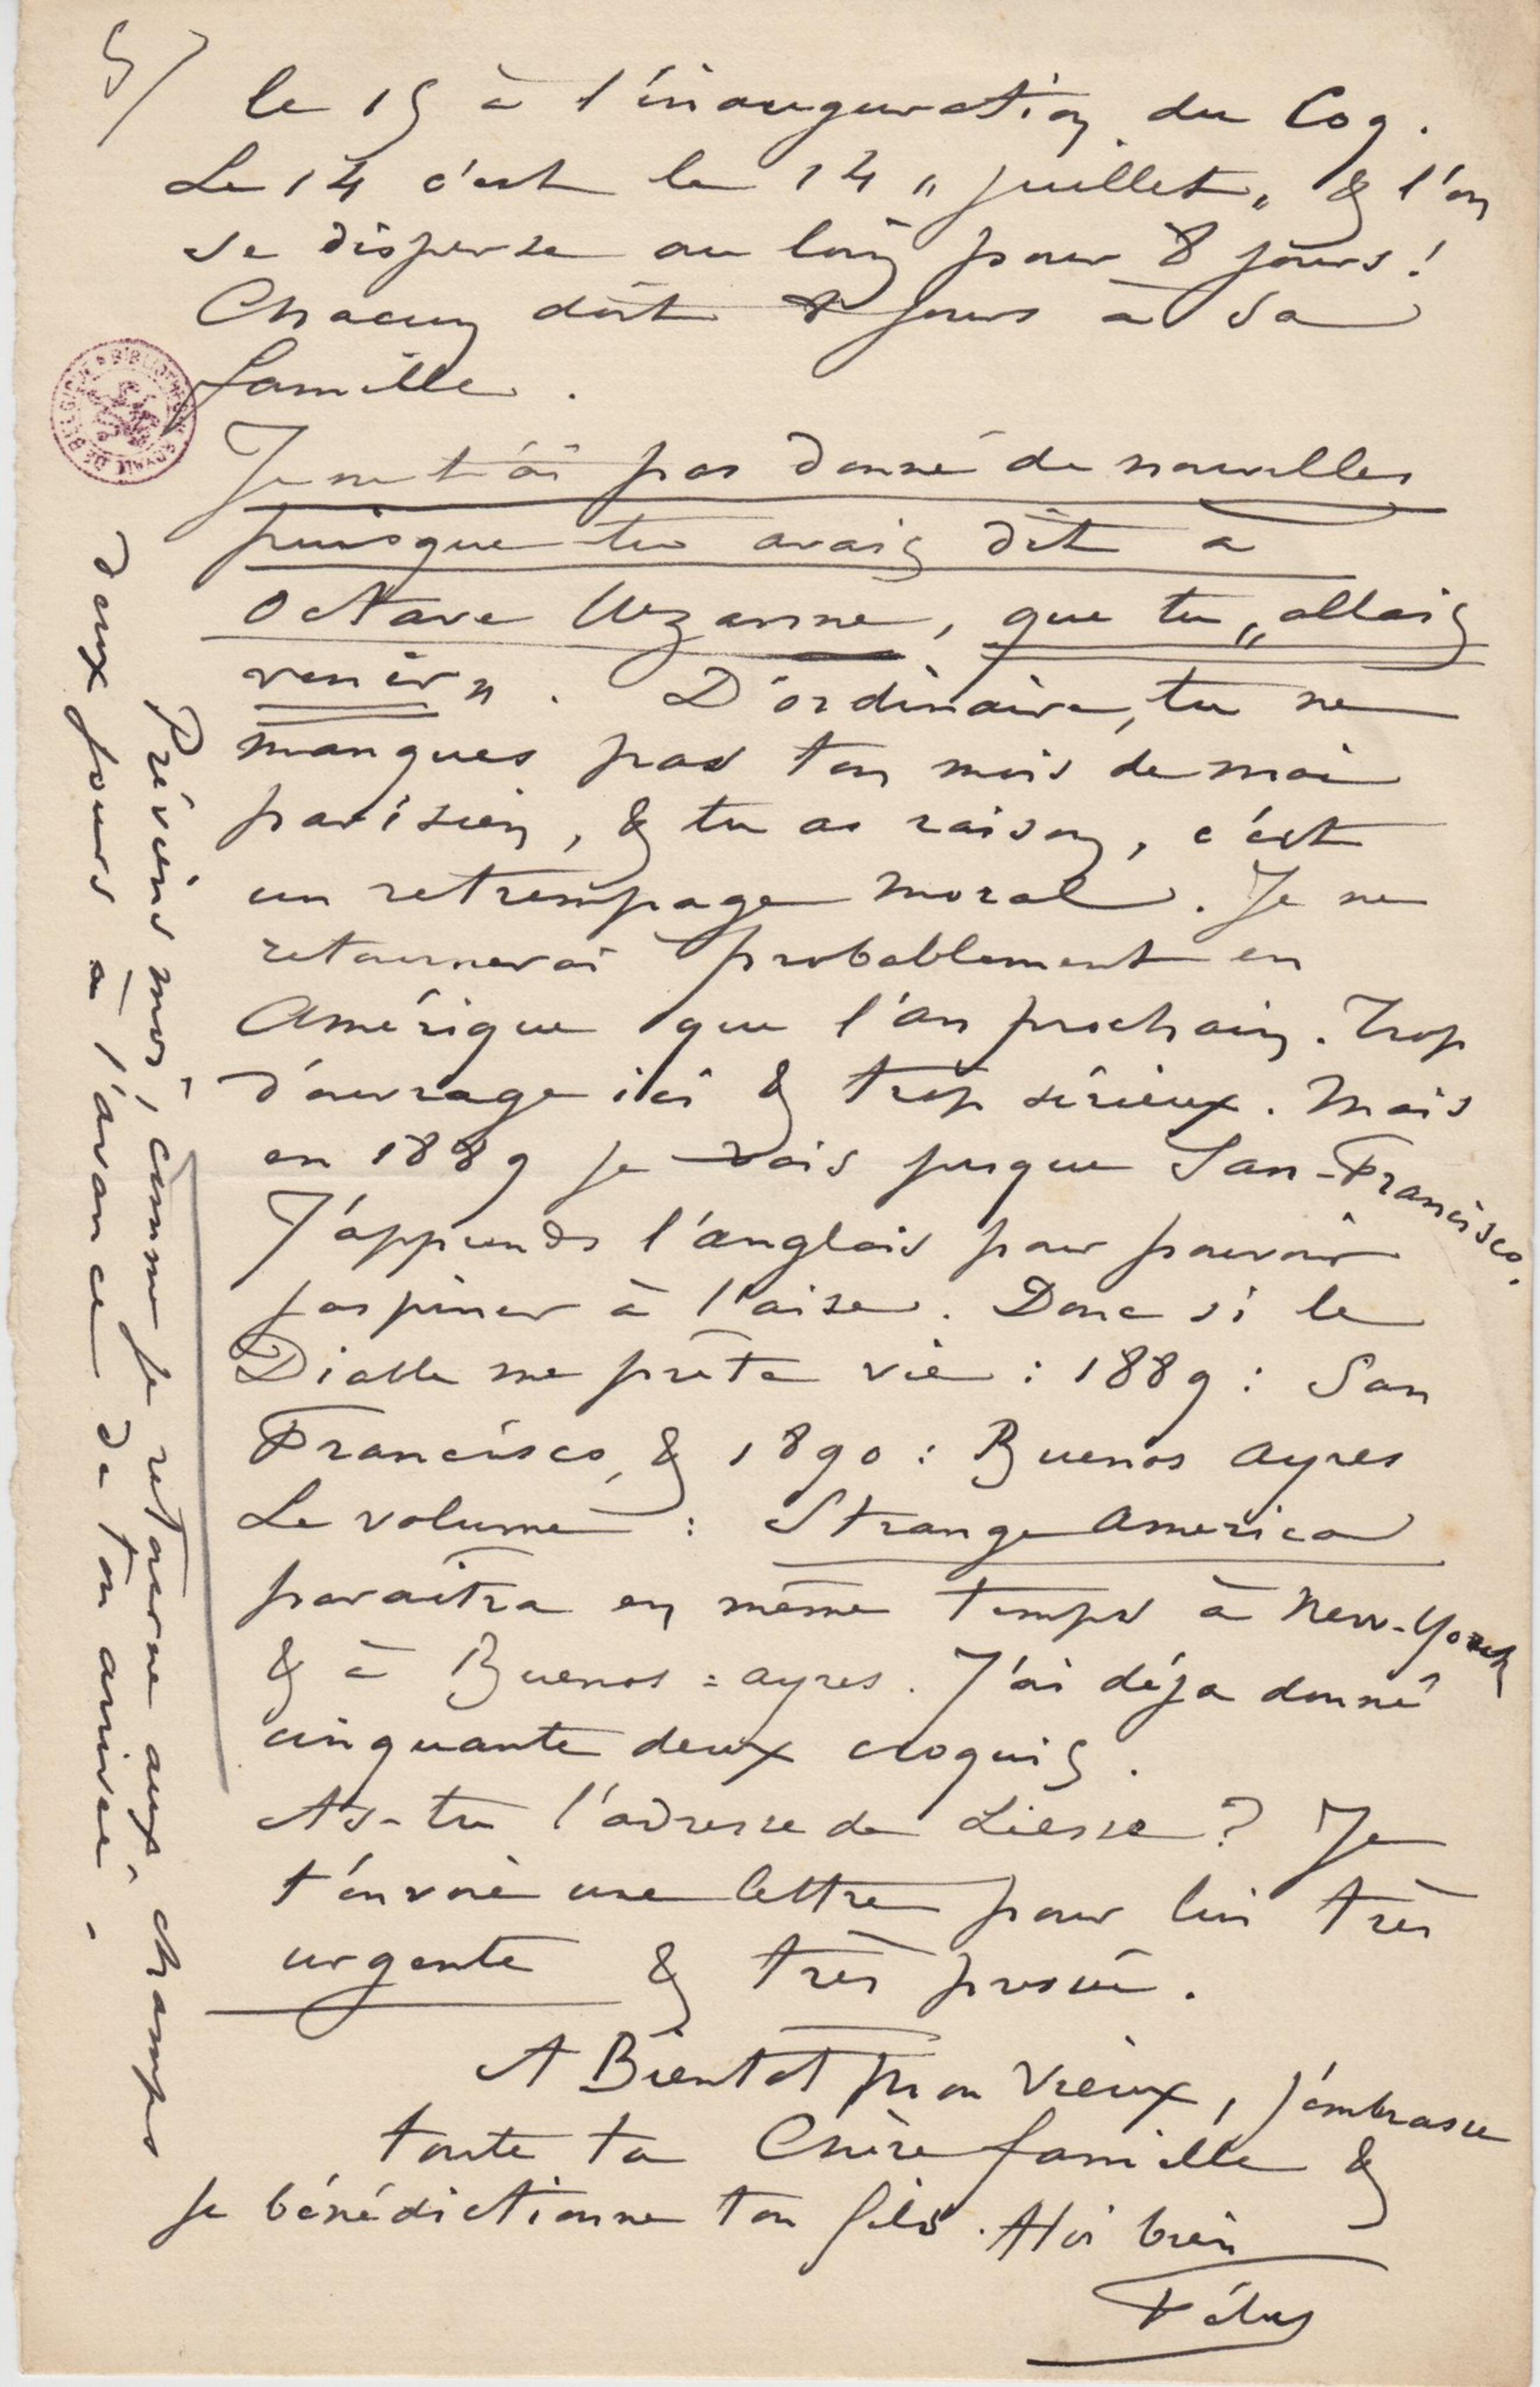 5/
le 15 à l'inauguration du Coq.
Le 14 c'est le 14 „juillet„ & l'on
se disperse au loin pour 8 jours!
Chacun doit 8 jours à sa
famille.
Je ne t'ai pas donné de nouvelles
puisque tu avais dit à
Octave Uzanne, que tu „allais
venir„. D'ordinaire, tu ne
manques pas ton mois de mai
parisien, & tu as raison, c'est
un retrempage moral. Je ne
retournerai probablement en
Amérique que l'an prochain. Trop
d'ouvrage ici & trop sérieux. Mais
en 1889 je vais jusque San-Francisco.
J'apprends l'anglais pour pouvoir
jaspiner à l'aise. Donc si le
Diable me prête vie : 1889 : San
Francisco, & 1890 : Buenos Ayres
Le volume : Strange America
paraitra en même temps à New-York
& à Buenos=ayres. J'ai déja donné
cinquante deux croquis.
As-tu l'adresse de Liesse? Je
t'envoie une lettre pour lui très
urgente & très pressée.
A Bientot mon vieux, j'embrasse
toute ta Chère famille &
je bénédictionne ton fils. A toi bien
Fély
Préviens moi, comme je retourne aux champs
deux jours à l'avance de ton arrivée.
BIBLIOTHÈQUE ROYALE DE BELGIQUE